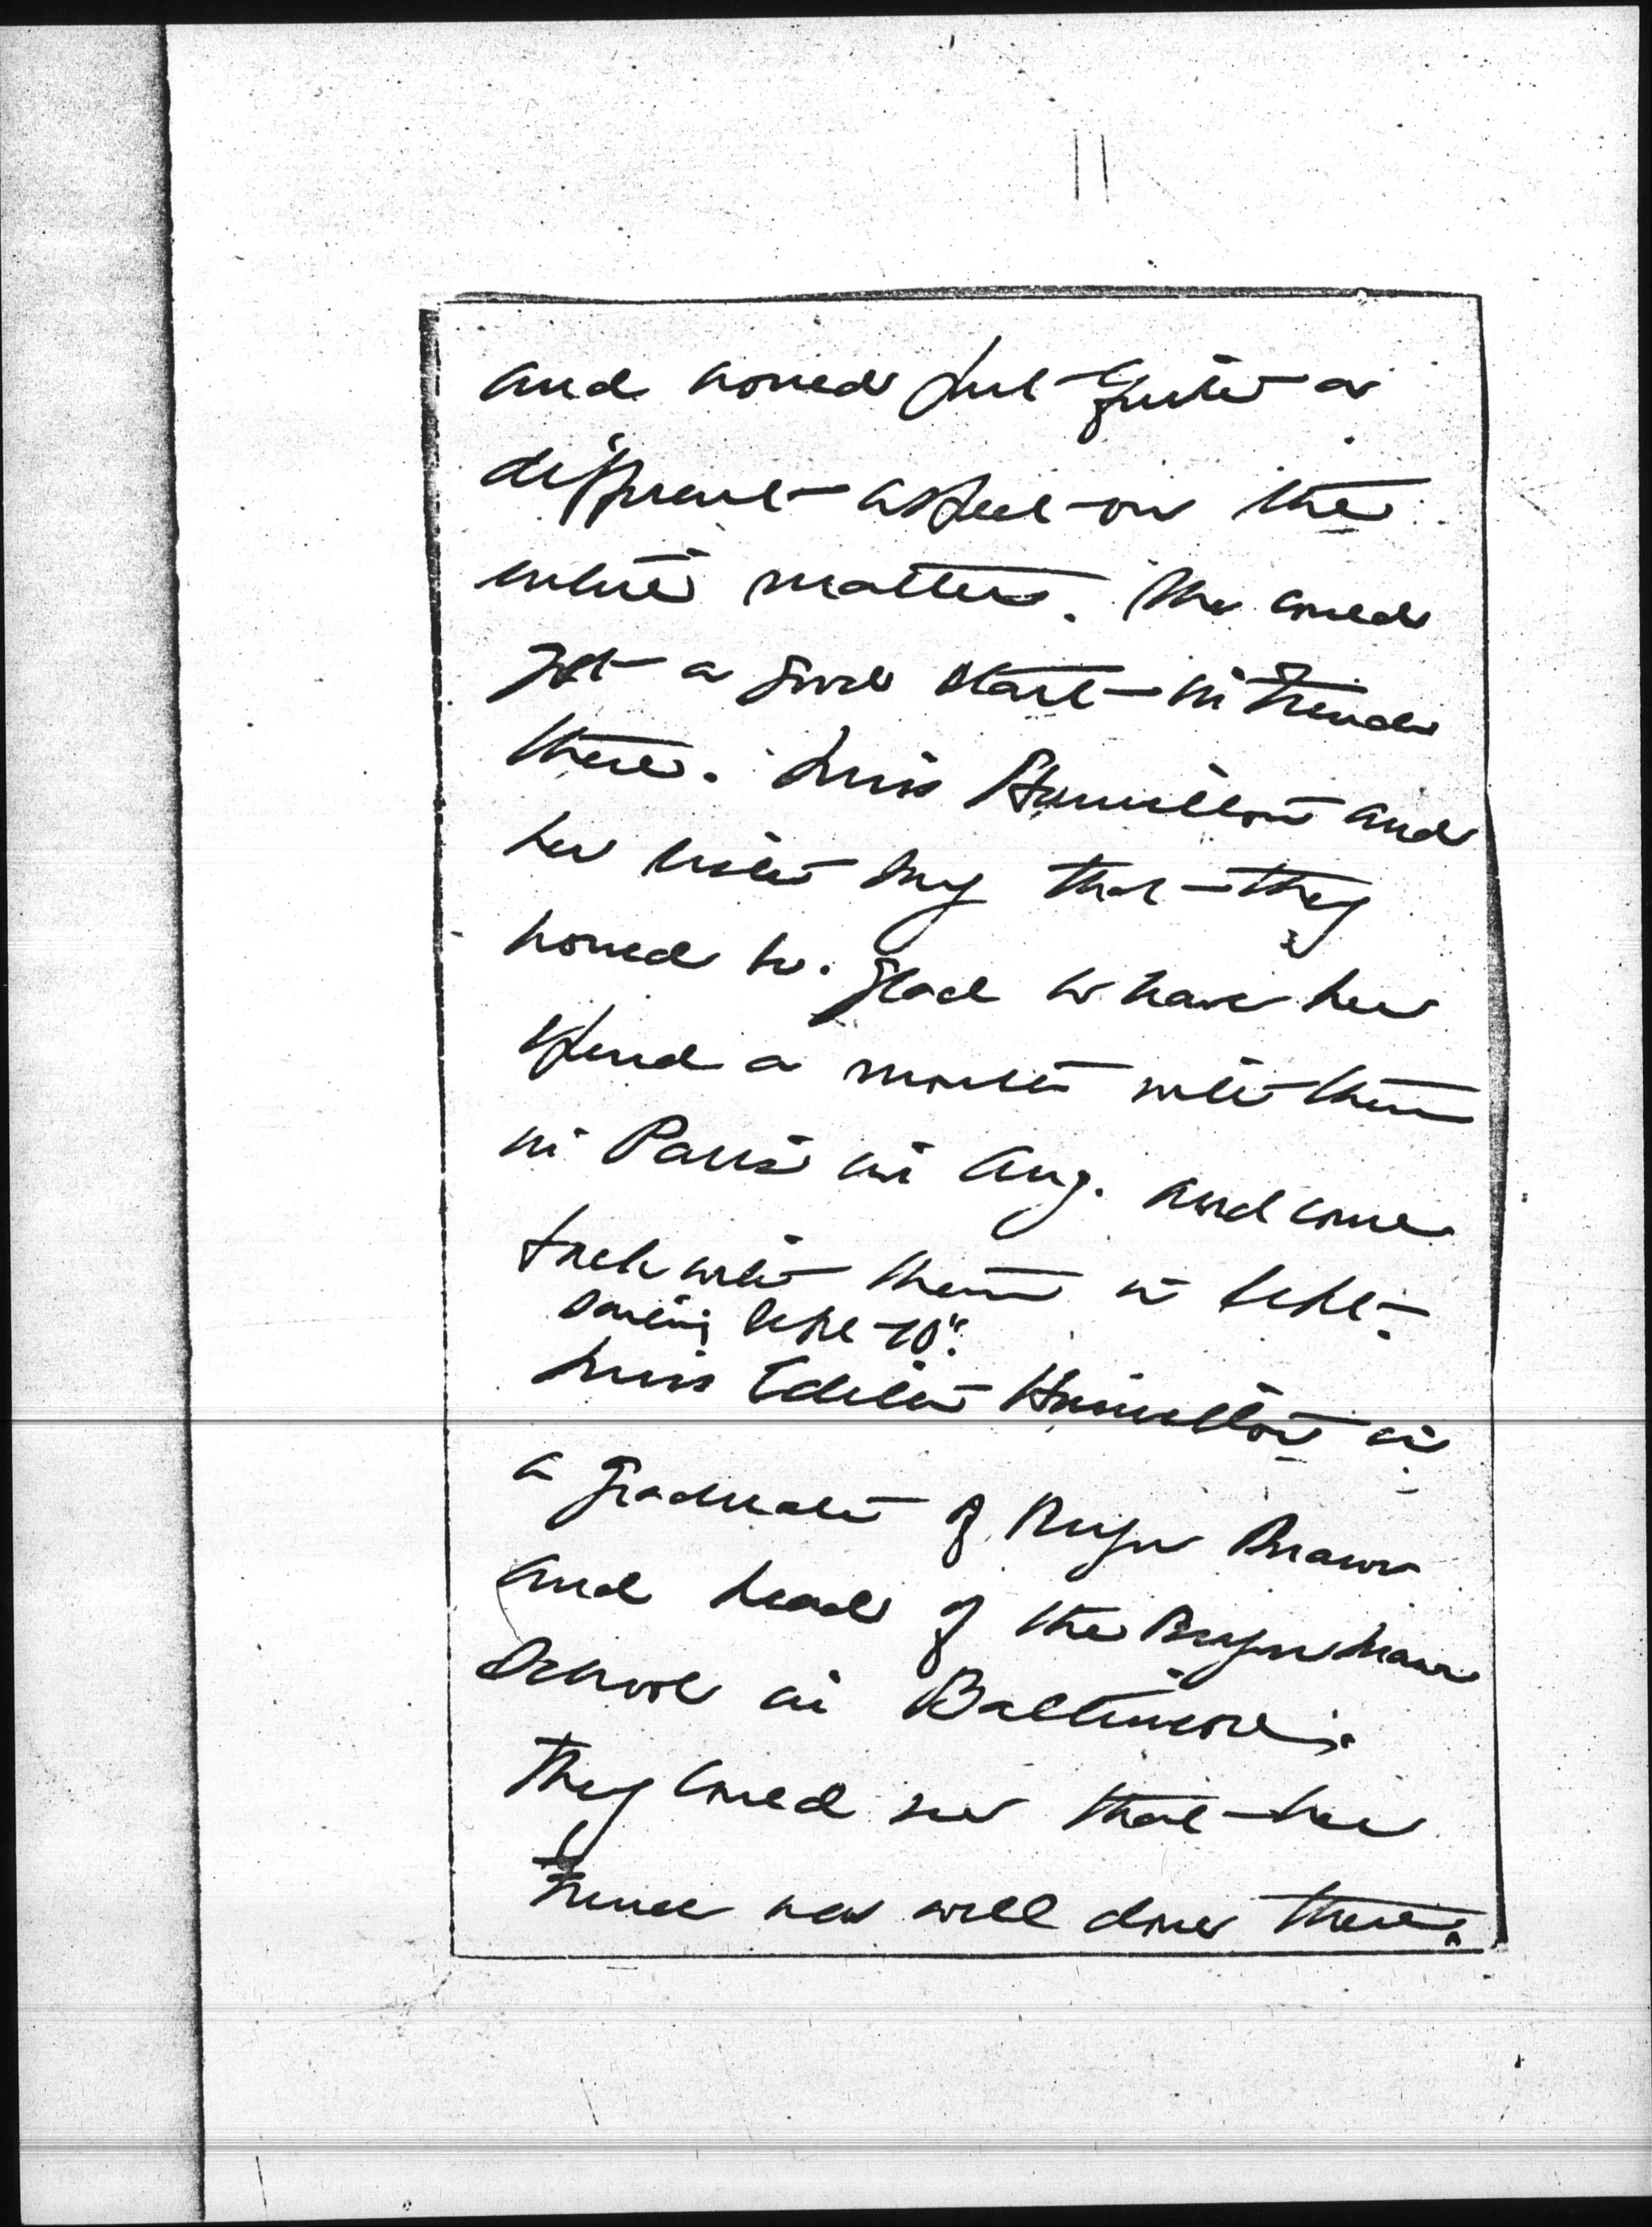 11
and would put quite a
different aspect on the
entire matter. She could
get a good start in French
there. Miss Hamilton and
her sister say that they
would be glad to have her
spend a month with them
in Paris in Aug. and come
back with them in Sept.
sailing Sept 10".
Miss Edith Hamilton is
a graduate of Bryn Mawr
and head of the Bryn Mawr
School in Baltimore.
They could see that her
French was well done there.